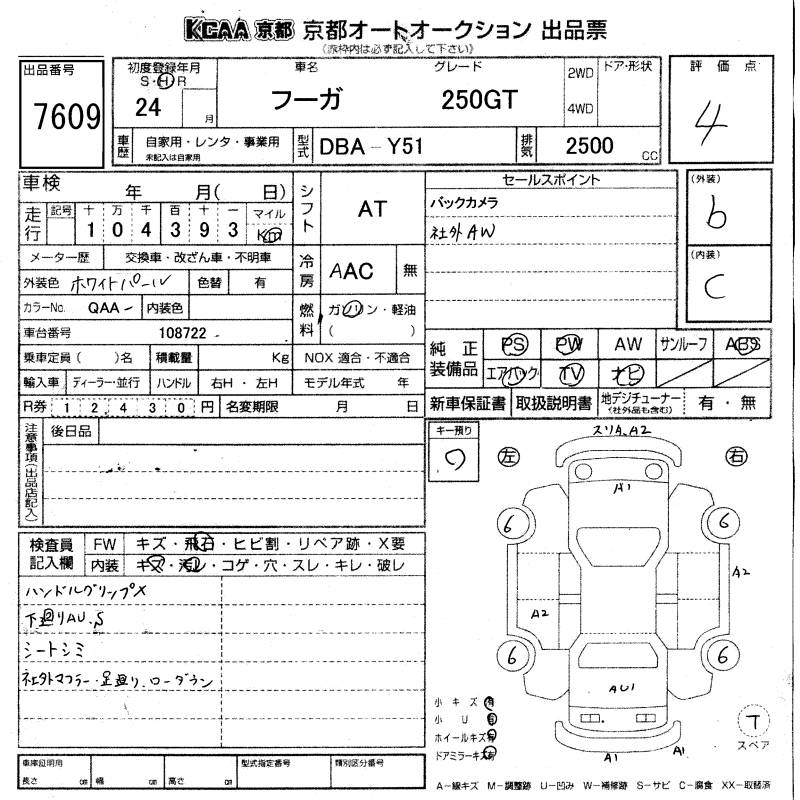 KCAA 京都 京都オートオークション 出品票
(赤枠内は必ず記入して下さい)
出品番号
7609
初度登録年月
S・H・R
24 月
車名
フーガ
グレード
250GT
2WD
4WD
ドア・形状
評価点
4
車歴
自家用・レンタ・事業用
未記入は自家用
型式
DBA-Y51
排気
2500 CC
車検 年 月( 日)
走行
記号 十 万 千 百 十 一 マイル
1 0 4 3 9 3 Km
メーター歴 交換車・改ざん車・不明車
外装色 ホワイトパール 色替 有
カラーNo. QAA- 内装色
車台番号 108722
乗車定員( )名 積載量 Kg
輸入車 ディーラー・並行 ハンドル 右H・左H
R券 1 2 4 3 0 円 名変期限 月 日
シフト AT
冷房 AAC 無
燃料 ガソリン・軽油
( )
NOX 適合・不適合
モデル年式 年
セールスポイント
バックカメラ
社外AW
(外装)
b
(内装)
C
純正装備品
PS PW AW サンルーフ ABS
エアバック TV ナビ
新車保証書 取扱説明書 地デジチューナー
(社外品も含む)
有・無
注意事項(出品店記入)
後日品
キー預り
ワ
左
右
スリA、A2
A1
6
6
A2
A2
6
6
AU1
A1
A1
T
スペア
検査員記入欄
FW キズ・飛石・ヒビ割・リペア跡・X要
内装 キズ・汚レ・コゲ・穴・スレ・キレ・破レ
ハンドルグリップX
下廻りAU、S
シートシミ
社外マフラー・足廻り、ローダウン
小キズ 有
小U 有
ホイールキズ 有
ドアミラーキズ 有
車庫証明用
長さ cm 幅 cm 高さ cm
型式指定番号
類別区分番号
A-線キズ M-調整跡 U-凹み W-補修跡 S-サビ C-腐食 XX-取替済